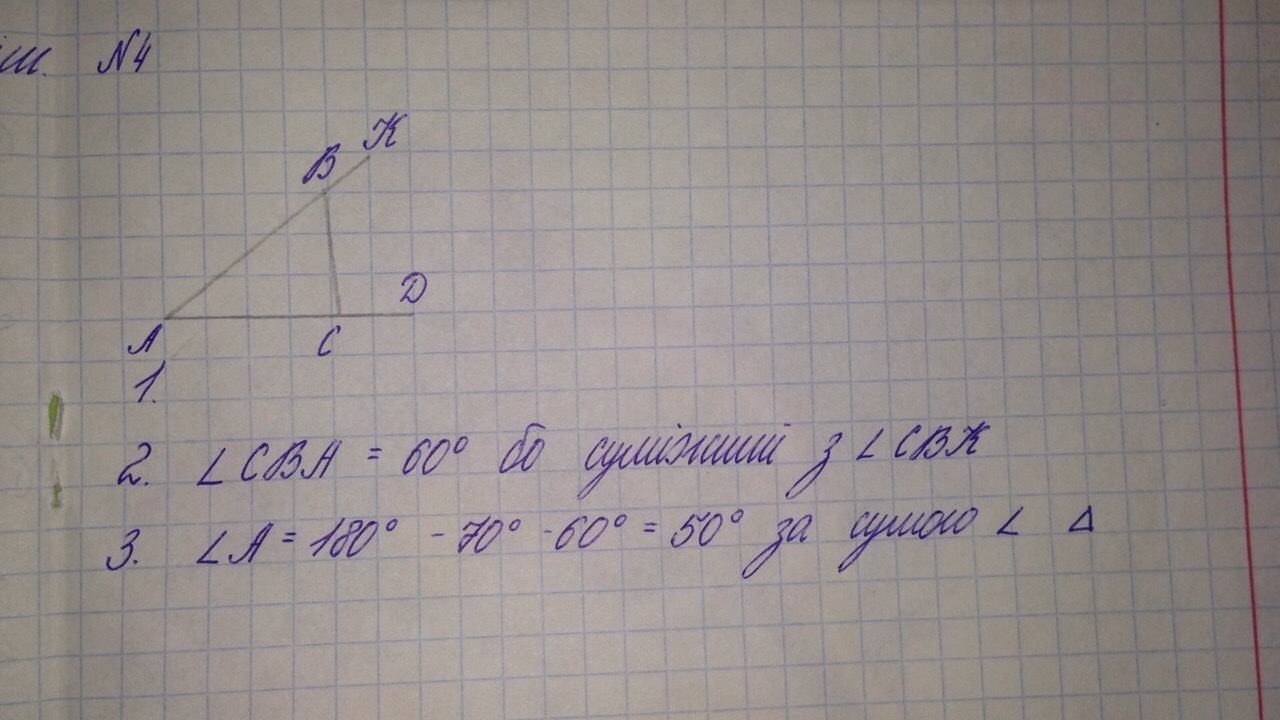 іш. №4
K
B
D
A
C
1.
2. ∠CBA = 60° бо суміжний з ∠CBK
3. ∠A = 180° - 70° - 60° = 50° за сумою ∠ Δ